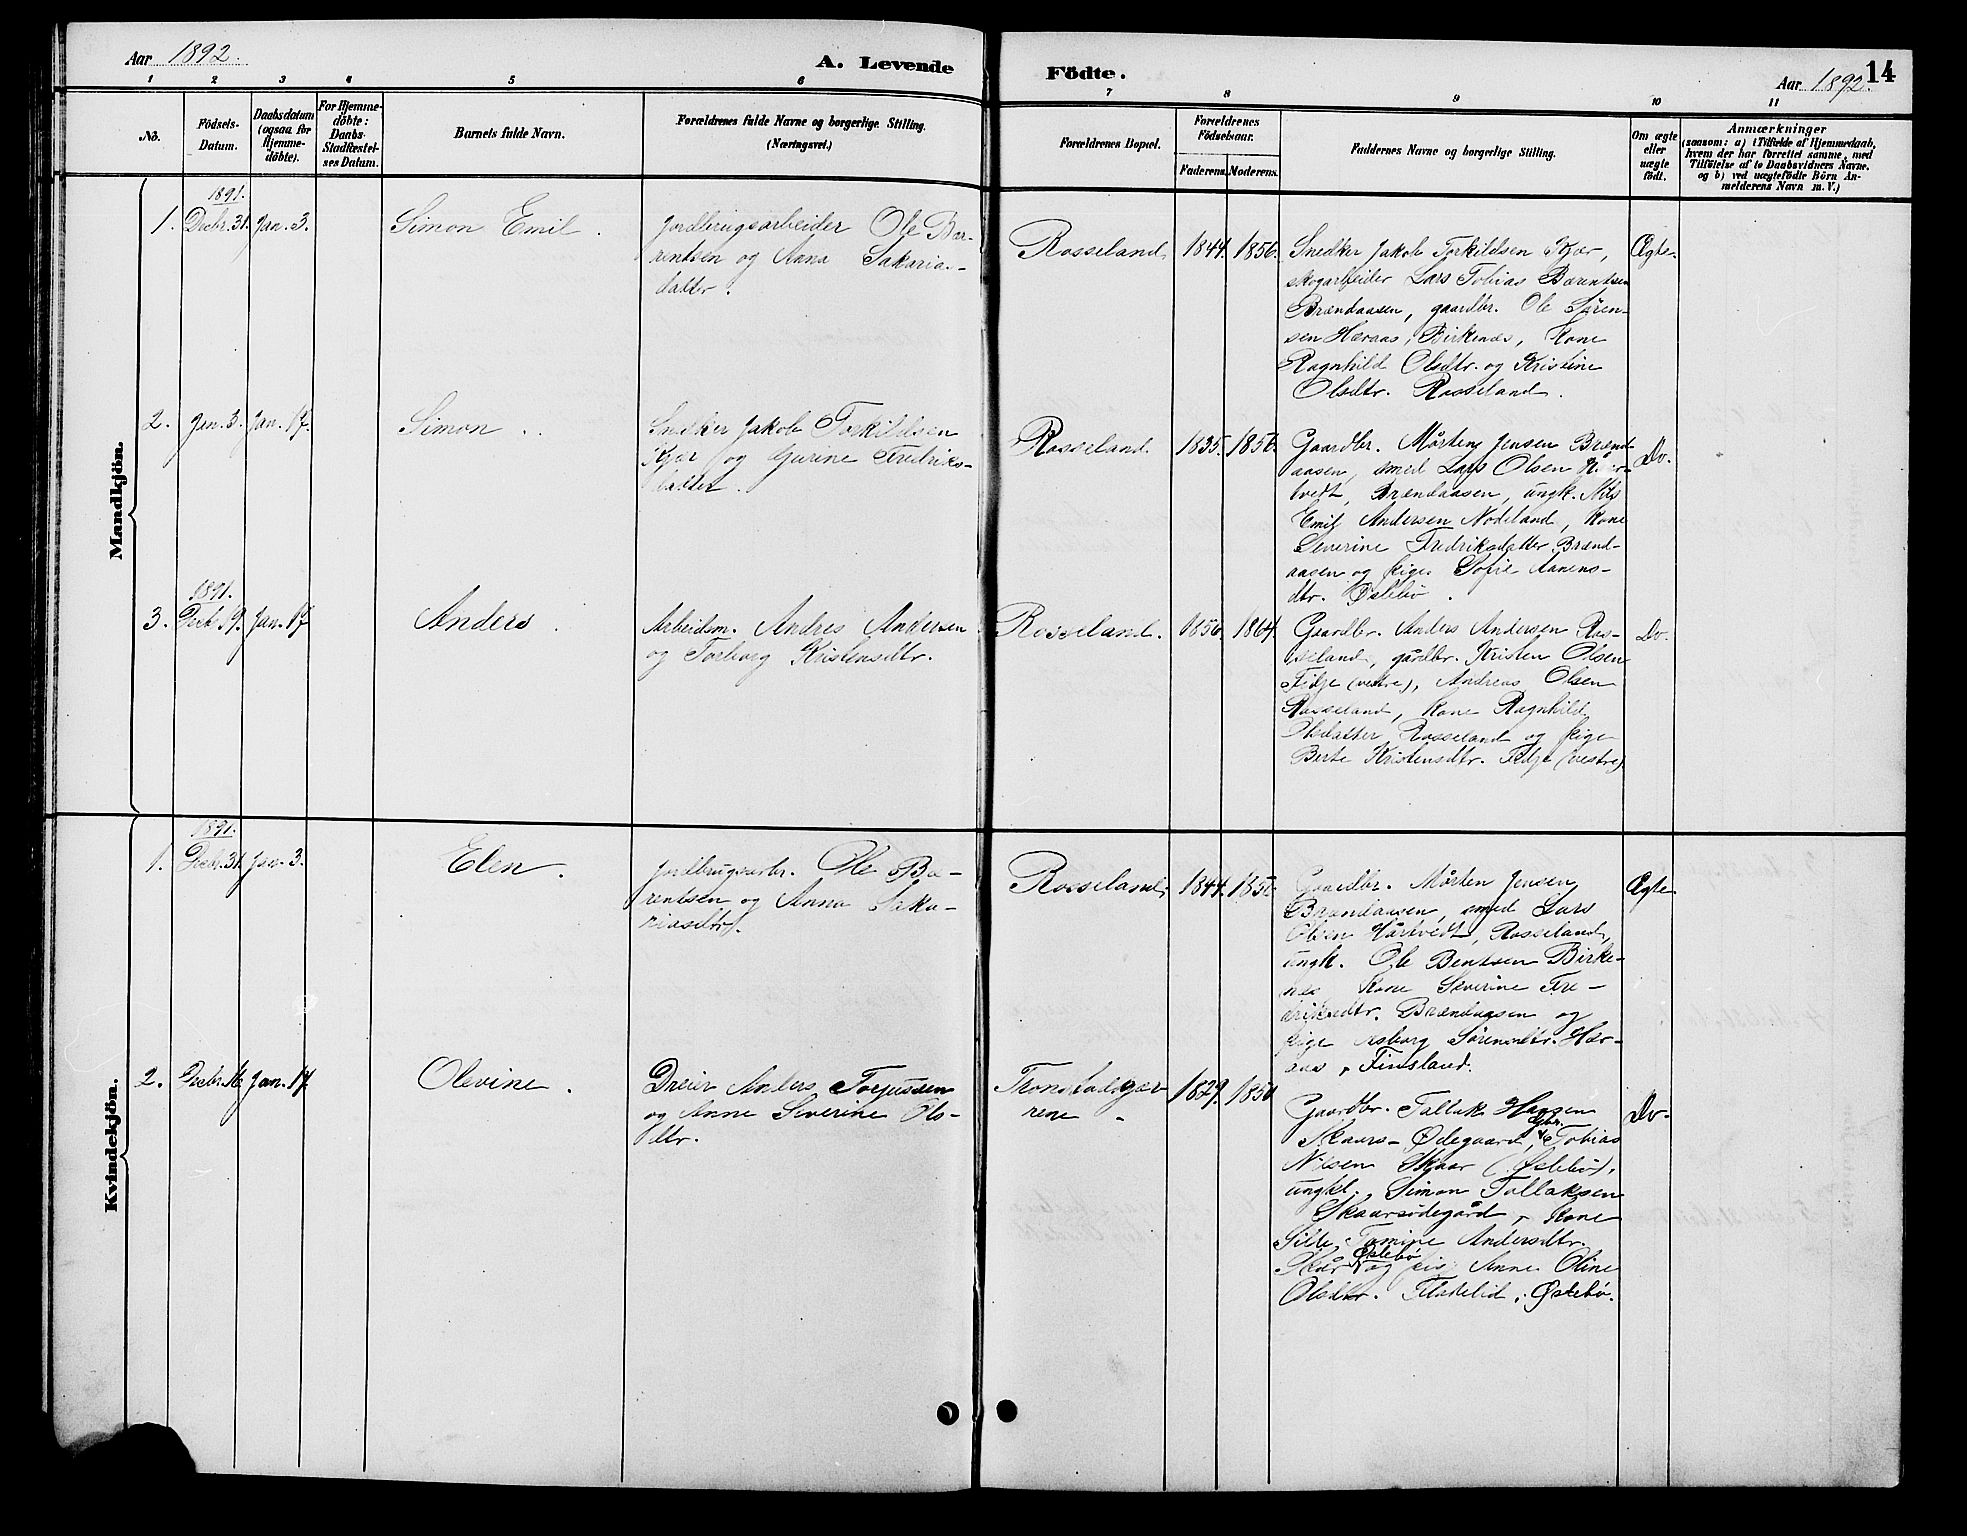 Aar 1892.
A. Levende Födte.
Aar 1892.
14
1 2 3 4 5 6 7 8 9 10 11
No.
Födsels-Datum.
Daabsdatum (ogsaa for Hjemme-döbte).
For Hjemme-döbte: Daabs-Stadfæstel-ses Datum.
Barnets fulde Navn.
Forældrenes fulde Navne og borgerlige Stilling.
(Næringsvei.)
Forældrenes Bopæl.
Forældrenes Födselsaar.
Faderens. Moderens.
Faddernes Navne og borgerlige Stilling.
Om ægte eller uægte født.
Anmærkninger
(saasom: a) i Tilfælde af Hjemmedaab,
hvem der har forrettet samme, med
Tilföielse af to Daabsvidners Navne,
og b) ved uægtefödte Börn An-
melderens Navn m. V.)
Mandkjön.
1891.
1. Decbr. 31. Jan. 3.
Simon Emil.
Jordbrugsarbeider Ole Bæ-
rentsen og Anna Sakarias-
datter.
Rosseland.
1844. 1856.
Snedker Jakob Torkildsen Kjær,
skogarbeider Lars Tobias Bærentsen
Brændaasen, gaardbr. Ole Sören-
sen Hæraas, Birkenæs, Kone
Ragnhild Olsdtr. og Kristine
Olsdtr. Rosseland.
Ægte.
2. Jan. 3. Jan. 17.
Simon.
Snedker Jakob Torkildsen
Kjær og Gurine Fredriks-
datter.
Rosseland.
1835.
Gaardbr. Mårten Jensen Brænd-
aasen, smed Lars Olsen
Brændaasen, ungk. Nils
Emil Andersen Nodeland, Kone
Severine Fredriksdatter Brænd-
aasen og pige Sofie Aanens-
dtr. Øslebö.
Do.
1891.
3. Decbr. 19. Jan. 17
Anders.
Arbeidsm. Andres Andersen
og Torborg Kristensdtr.
Rosseland.
1856. 1864.
Gaardbr. Anders Andersen Ros-
seland, gårdbr. Kristen Olsen
Fidje (vestre), Andreas Olsen
Rosseland, Kone Ragnhild
Olsdatter Rosseland og pige
Berte Kristensdtr. Fidje (vestre)
Do.
Kvindekjön.
1891.
1. Decbr. 31. Jan. 3.
Elen.
Jordbrugsarbr. Ole Bæ-
rentsen og Anna Saka-
riasdtr.
Rosseland.
1844.
Gaardbr. Mårten Jensen
Brændaasen, smed Lars
Olsen Hårtvedt, Rosseland,
ungk. Ole Bentsen Birke-
næs Kone Severine Fre-
driksdtr. Brændaasen og
pige Asborg Sörensdtr. Hær-
aas, Finsland.
Ægte
2. Decbr. 16 Jan. 17.
Olevine.
Dreier Anders Torjussen
og Anne Severine Ols-
dtr.
1829.
Gaardbr. Tollak Hansen
Skaars-Ødegaard, Tobias
Nilsen Skaar (Øslebö),
ungkl. Simon Tollaksen
Skaarsödegård, Kone
Tomine Andersdtr.
Skår Øslebö og Anne Oline
Olsdtr. Øslebö.
Do.